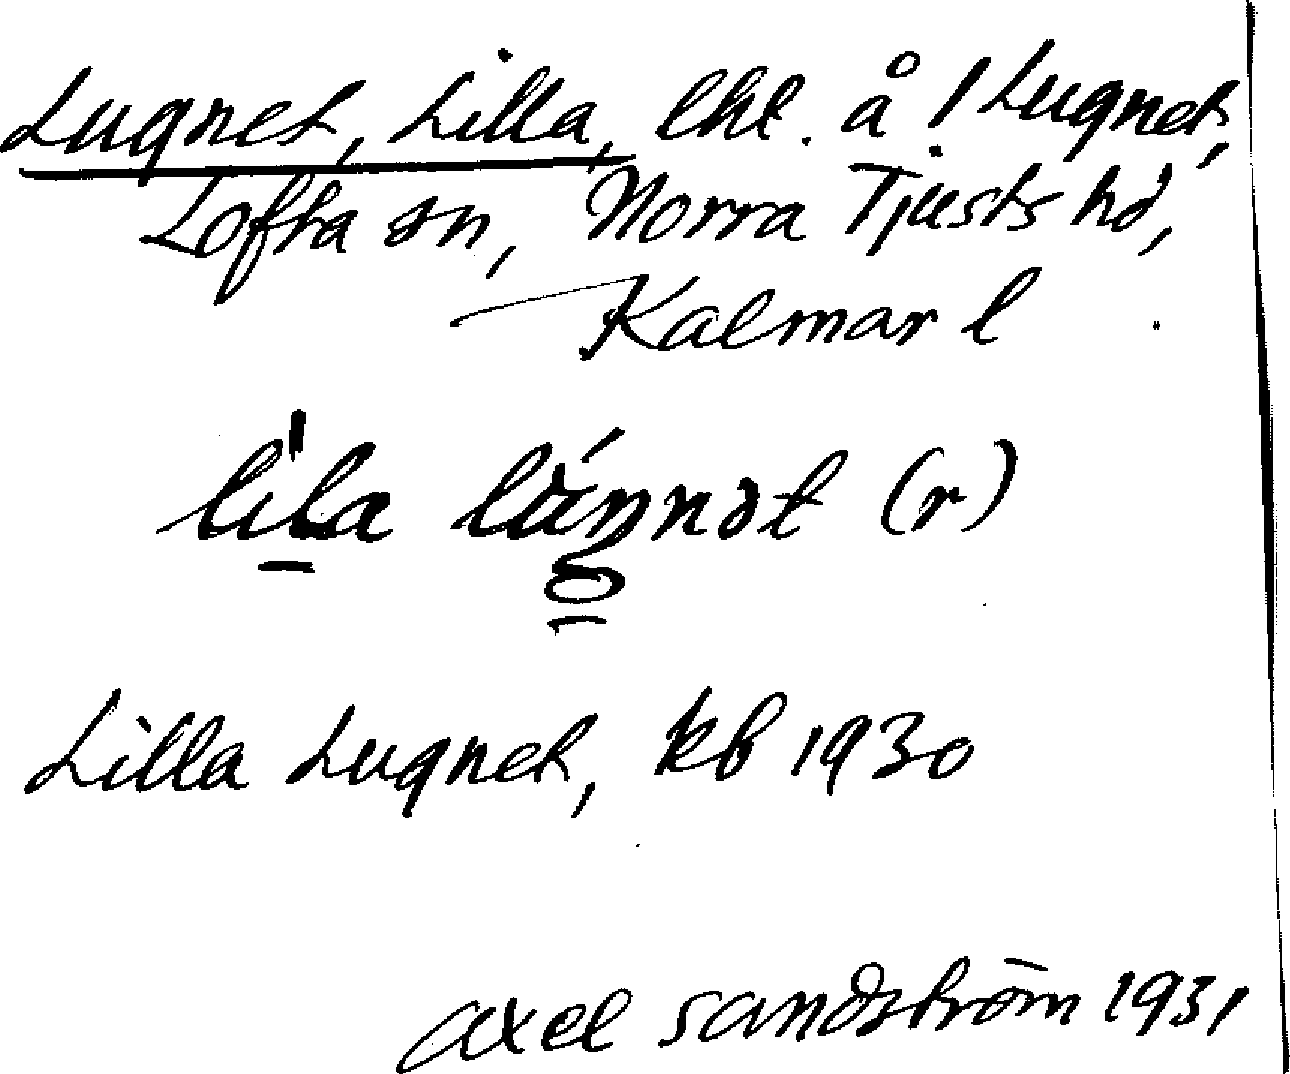 Lugnet, Lilla, lht. å 1 Lugnet,
Lofta sn, Norra Tjusts hd,
Kalmar l
Lilla Lugnet, kb 1930
Axel Sandström 1931